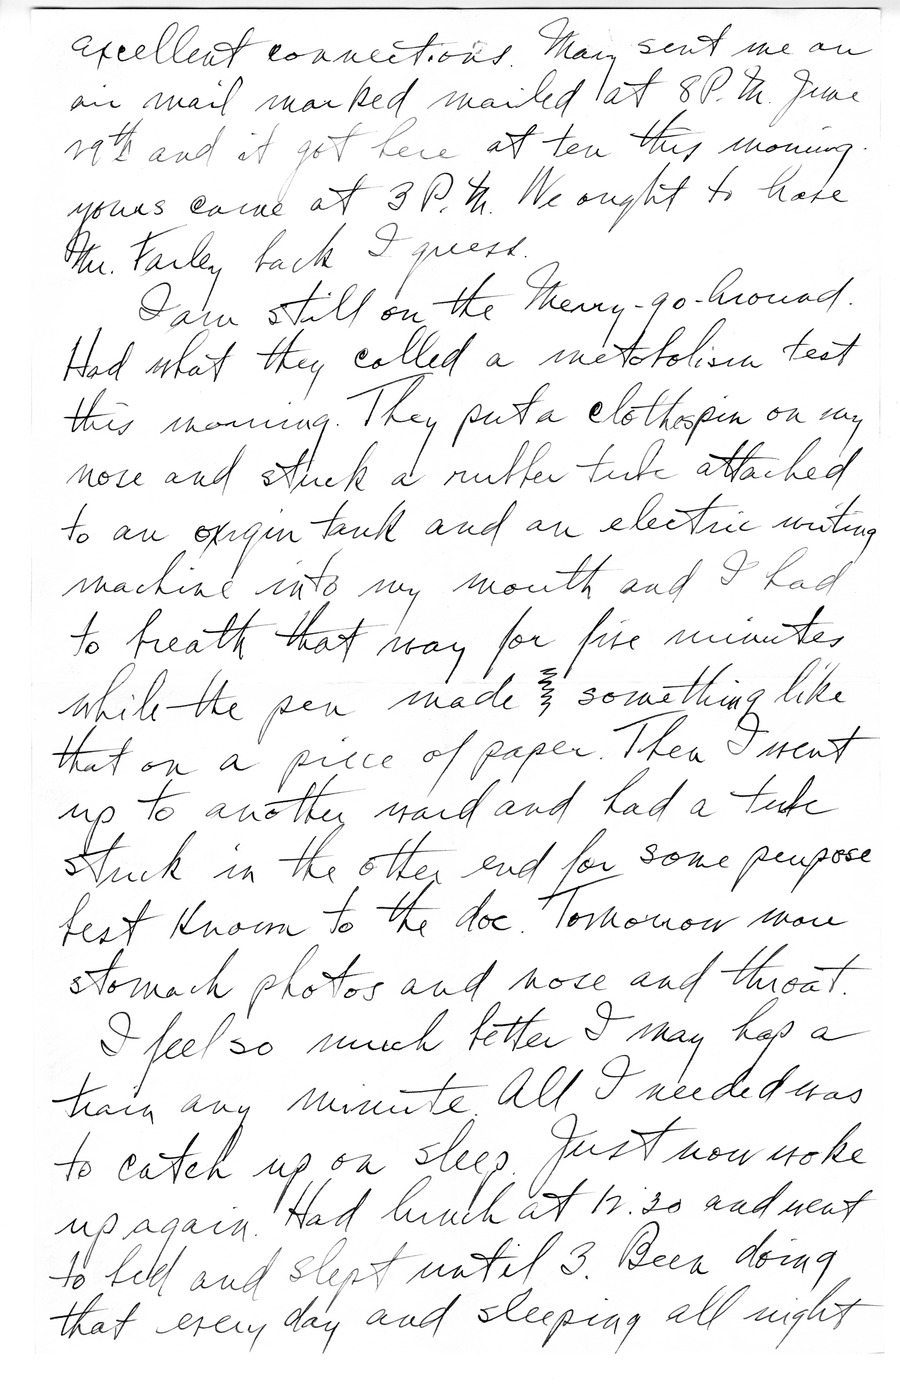 excellent connections. Mary sent me an
air mail marked mailed at 8 P.M. June
29th and it got here at ten this morning.
yours came at 3 P.M. We ought to have
Mr. Farley back I guess.
I am still on the Merry-go-hround.
Had what they called a metobolism test
this morning. They put a clothespin on my
nose and stuck a rubber tube attached
to an oxigin tank and an electric writing
machine into my mouth and I had
to breath that way for five minutes
while the pen made something like
that on a piece of paper. Then I went
up to another ward and had a tube
stuck in the other end for some purpose
best known to the doc. Tomorrow more
stomach photos and nose and throat.
I feel so much better I may hop a
train any minute. All I needed was
to catch up on sleep. Just now woke
up again. Had lunch at 12:30 and went
to bed and slept until 3. Been doing
that every day and sleeping all night